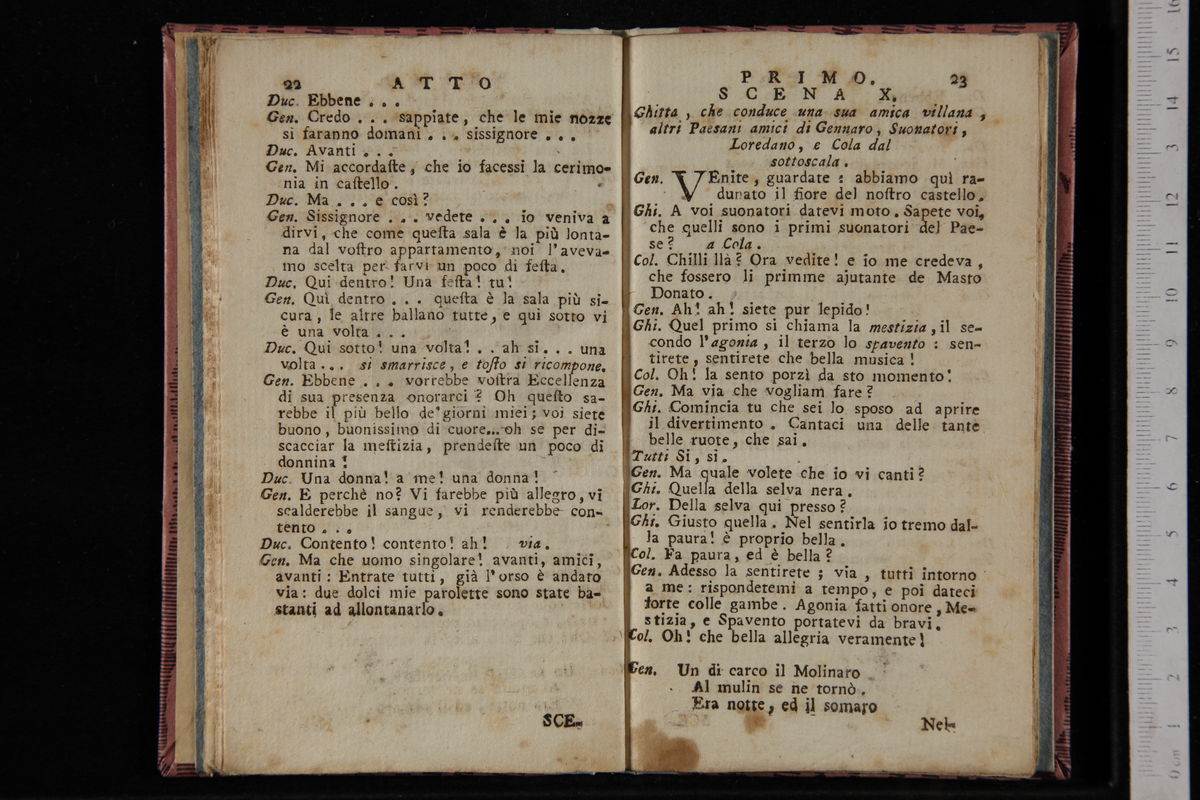 22 ATTO
Duc. Ebbene . . .
Gen. Credo . . . sappiate, che le mie nozze
si faranno domani . . . sissignore . . .
Duc. Avanti . . .
Gen. Mi accordaſte, che io facessi la cerimo-
nia in caſtello.
Duc. Ma . . . e così?
Gen. Sissignore . . . vedete . . . io veniva a
dirvi, che come queſta sala è la più lonta-
na dal voſtro appartamento, noi l'aveva-
mo scelta per farvi un poco di feſta.
Duc. Qui dentro! Una feſta! tu!
Gen. Quì dentro . . . queſta è la sala più si-
cura, le altre ballano tutte, e qui sotto vi
è una volta . . .
Duc. Qui sotto! una volta! . . ah sì . . . una
volta . . . si smarrisce, e toſto si ricompone.
Gen. Ebbene . . . vorrebbe voſtra Eccellenza
di sua presenza onorarci? Oh queſto sa-
rebbe il più bello de'giorni miei; voi siete
buono, buonissimo di cuore...oh se per di-
scacciar la meſtizia, prendeſte un poco di
donnina!
Duc. Una donna! a me! una donna!
Gen. E perchè no? Vi farebbe più allegro, vi
scalderebbe il sangue, vi renderebbe con-
tento . . .
Duc. Contento! contento! ah! via.
Gen. Ma che uomo singolare! avanti, amici,
avanti: Entrate tutti, già l'orso è andato
via: due dolci mie parolette sono state ba-
stanti ad allontanarlo.
SCE-
PRIMO. 23
SCENA X.
Ghitta, che conduce una sua amica villana,
altri Paesani amici di Gennaro, Suonatori,
Loredano, e Cola dal
sottoscala.
Gen. VEnite, guardate: abbiamo quì ra-
dunato il fiore del noſtro castello.
Ghi. A voi suonatori datevi moto. Sapete voi,
che quelli sono i primi suonatori del Pae-
se? a Cola.
Col. Chilli llà? Ora vedite! e io me credeva,
che fossero li primme ajutante de Masto
Donato.
Gen. Ah! ah! siete pur lepido!
Ghi. Quel primo si chiama la mestizia, il se-
condo l'agonia, il terzo lo spavento: sen-
tirete, sentirete che bella musica!
Col. Oh! la sento porzì da sto momento!
Gen. Ma via che vogliam fare?
Ghi. Comincia tu che sei lo sposo ad aprire
il divertimento. Cantaci una delle tante
belle ruote, che sai.
Tutti Si, si.
Gen. Ma quale volete che io vi canti?
Ghi. Quella della selva nera.
Lor. Della selva qui presso?
Ghi. Giusto quella. Nel sentirla io tremo dal-
la paura! è proprio bella.
Col. Fa paura, ed è bella?
Gen. Adesso la sentirete; via, tutti intorno
a me: rispondetemi a tempo, e poi dateci
forte colle gambe. Agonia fatti onore, Me-
stizia, e Spavento portatevi da bravi.
Col. Oh! che bella allegria veramente!
Gen. Un dì carco il Molinaro
Al mulin se ne tornò.
Era notte, ed il somaro
Nel-